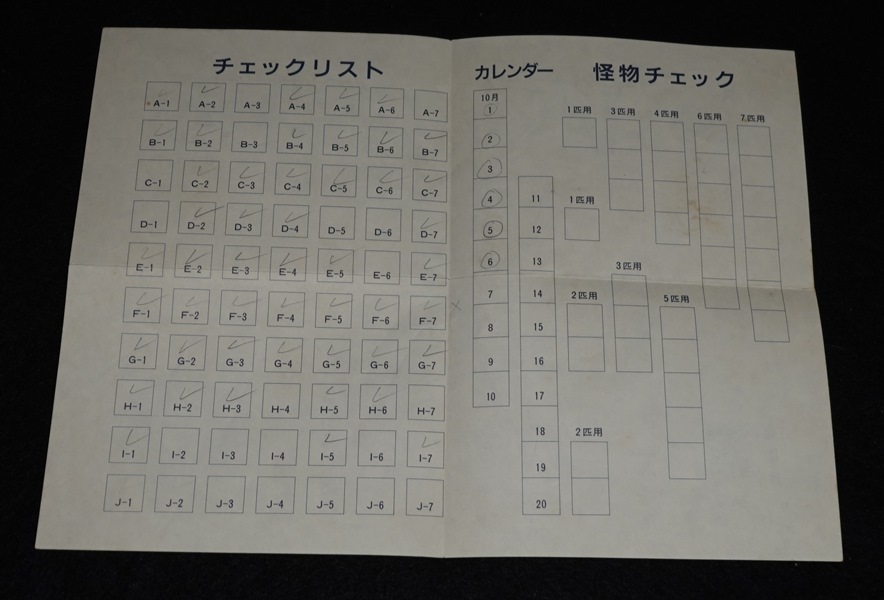 チェックリスト
A-1 A-2 A-3 A-4 A-5 A-6 A-7
B-1 B-2 B-3 B-4 B-5 B-6 B-7
C-1 C-2 C-3 C-4 C-5 C-6 C-7
D-1 D-2 D-3 D-4 D-5 D-6 D-7
E-1 E-2 E-3 E-4 E-5 E-6 E-7
F-1 F-2 F-3 F-4 F-5 F-6 F-7
G-1 G-2 G-3 G-4 G-5 G-6 G-7
H-1 H-2 H-3 H-4 H-5 H-6 H-7
I-1 I-2 I-3 I-4 I-5 I-6 I-7
J-1 J-2 J-3 J-4 J-5 J-6 J-7
カレンダー
10月
1
2
3
4
5
6
7
8
9
10
11
12
13
14
15
16
17
18
19
20
怪物チェック
1匹用 3匹用 4匹用 6匹用 7匹用
1匹用
3匹用
2匹用 5匹用
2匹用